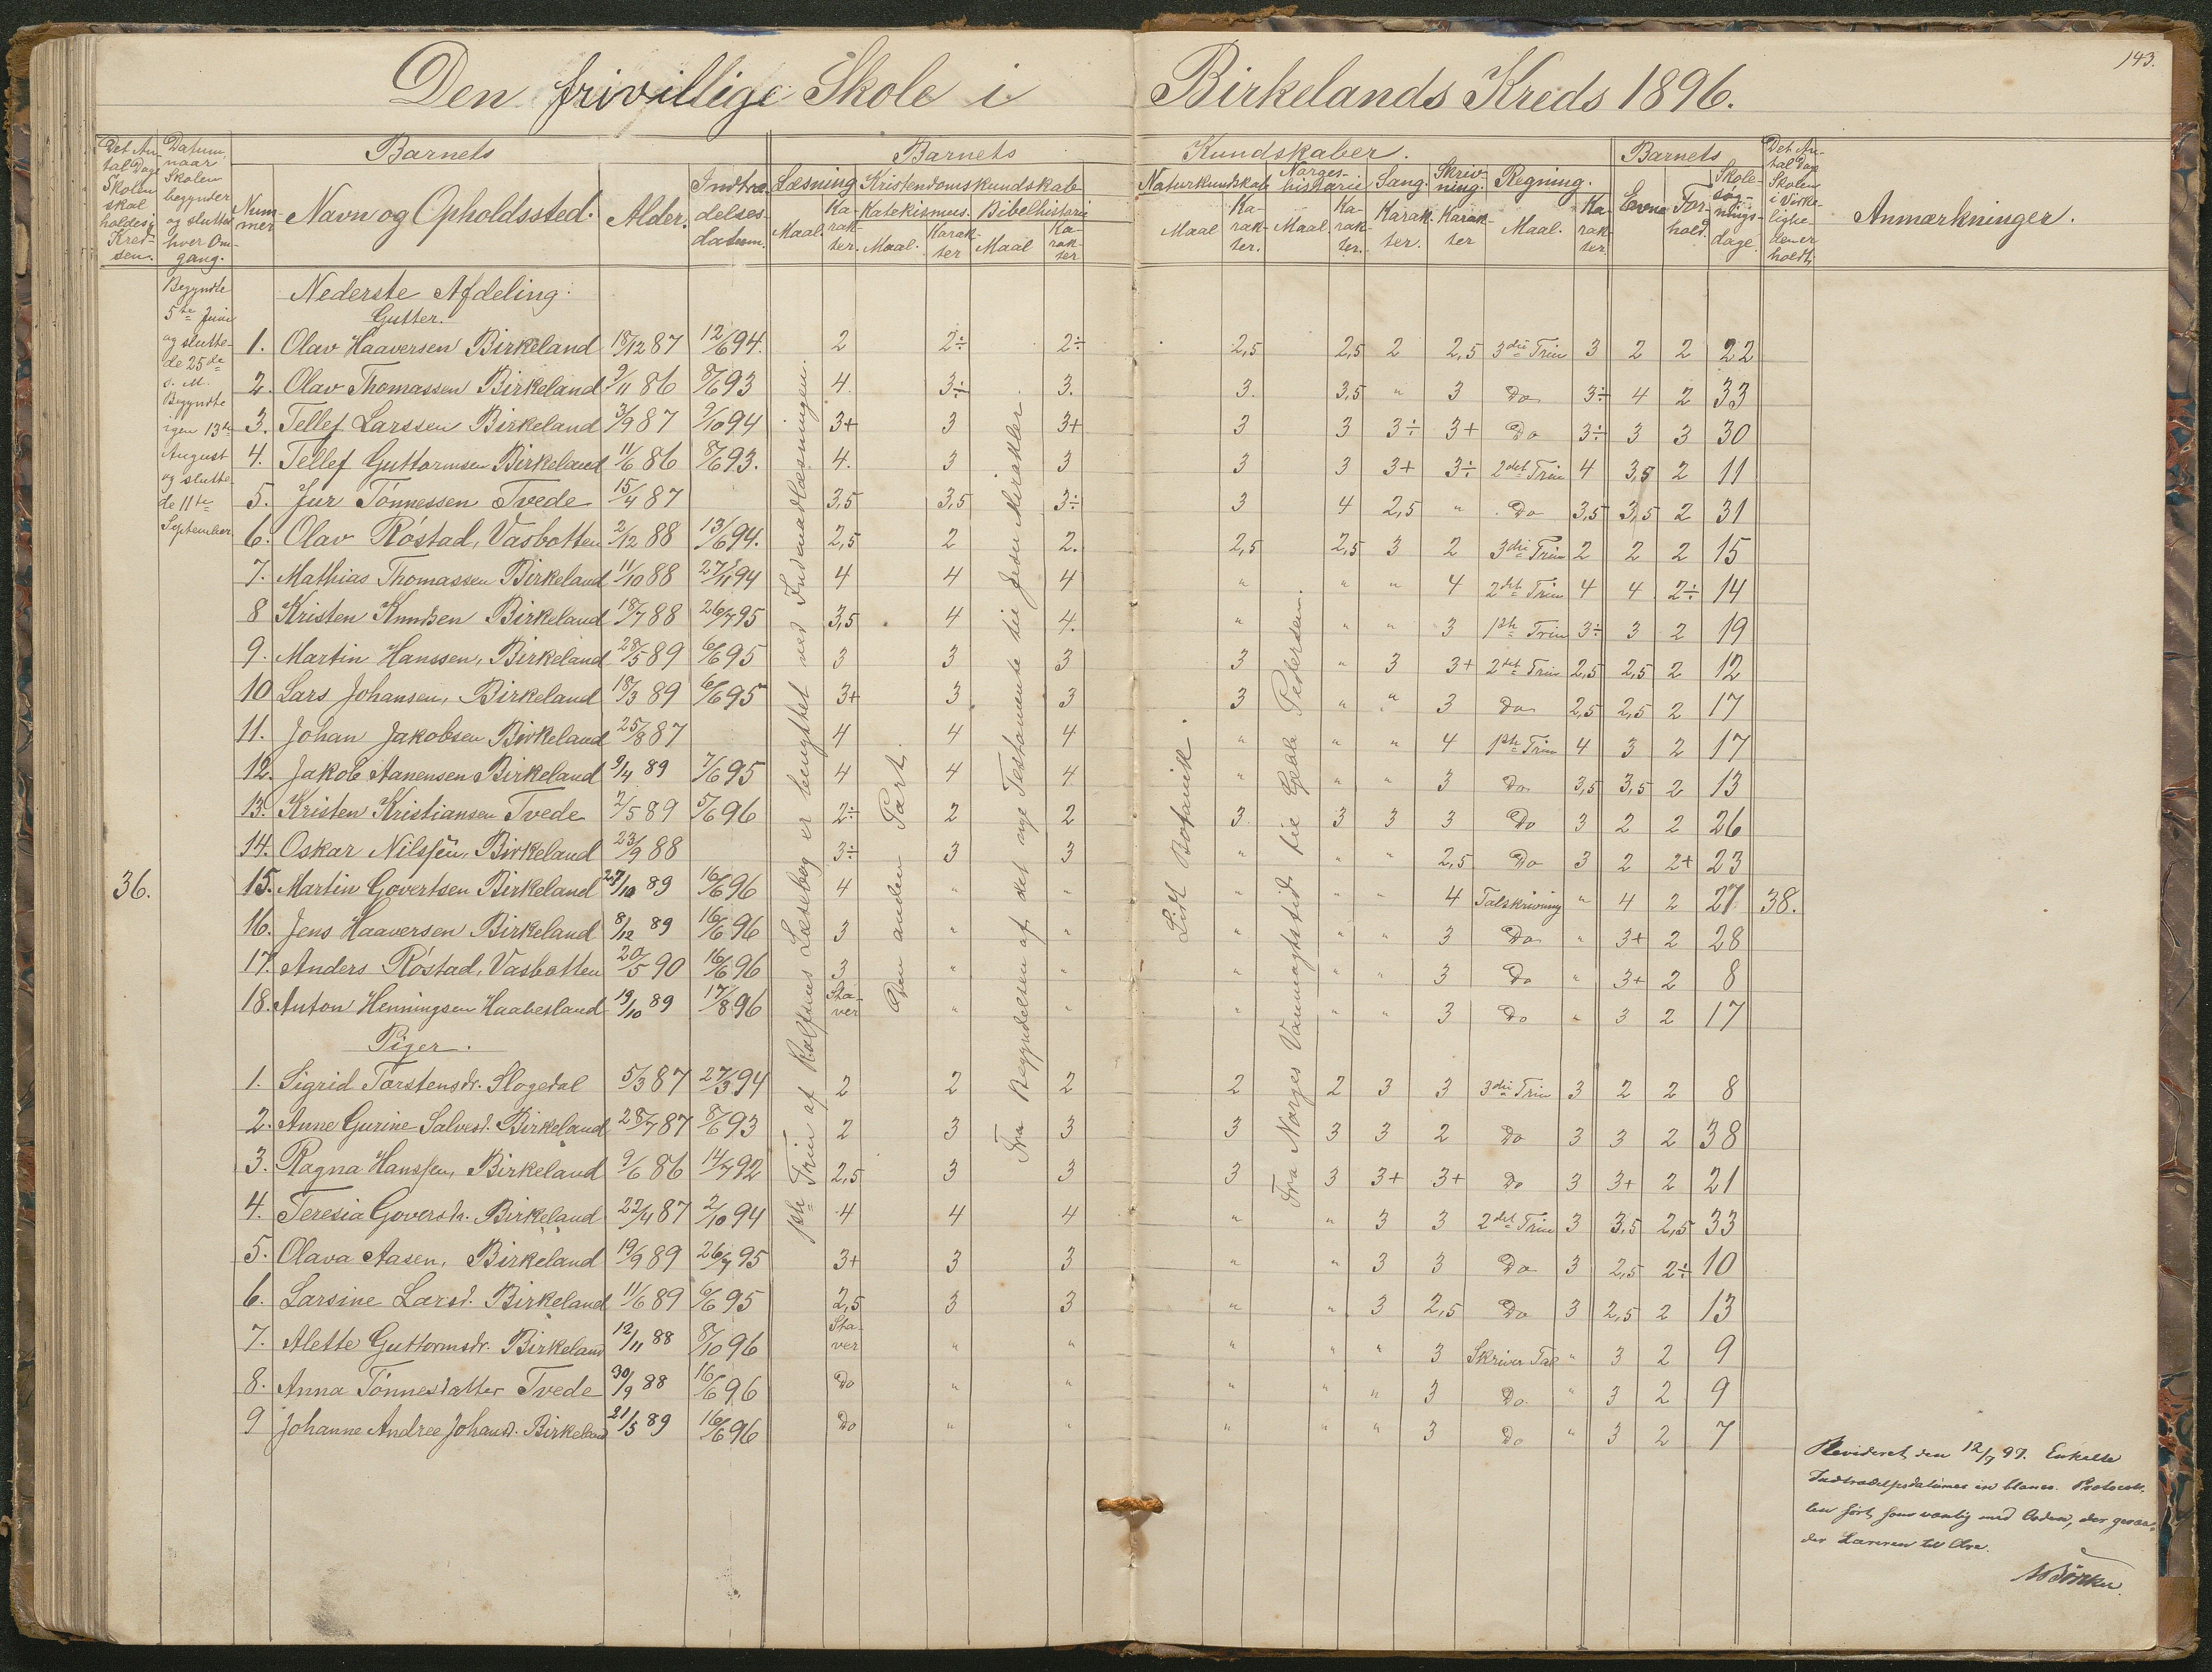 143.
Den frivillige Skole i Birkelands Kreds 1896.
Det An-
tal Dage
Skolen
skal
holdes i
Kred-
sen.
Datum,
naar
Skolen
begynder
og slutter
hver Om-
gang.
Barnets
Num-
mer
Navn og Opholdssted.
Alder.
Indtræ-
delses-
datum.
Barnets Kundskaber.
Læsning
Maal.
Ka-
rak-
ter.
Kristendomskundskab
Katekismus.
Maal.
Karak-
ter
Bibelhistorie
Maal
Ka-
rak-
ter
Naturkundskab
Maal
Ka-
rak-
ter.
Norges-
historie
Maal
Ka-
rak-
ter.
Sang.
Karak-
ter.
Skriv-
ning.
Karak-
ter
Regning.
Maal.
Ka-
rak-
ter.
Barnets
Evne
For-
hold.
Skole-
søg-
nings-
dage.
Det An-
tal Dage
Skolen
i Virke-
lighe-
den er
holdt.
Anmærkninger.
Begyndte
5te Juni
og slutte-
de 25de
s. M.
Begyndte
igen 13de
August
og slutte-
de 11te
September
36.
38.
1ste Trin af Rolfsens Læsebog er benyttet ved Indenadlæsningen.
Den anden Part.
Fra Begyndelsen af det nye Testamente til Jesu Mirakler.
Lidt Botanik.
Fra Norges Vanmagtstid til Geble Pedersen.
Nederste Afdeling.
Gutter.
1. Olav Haaversen Birkeland 18/12 87 12/6 94. 2 2÷ 2÷ 2,5 2,5 2 2,5 3die Trin 3 2 2 22
2. Olav Thomassen Birkeland 9/11 86 8/6 93 4 3÷ 3. 3. 3,5 " 3 Do 3÷ 4 2 33
3. Tellef Larssen Birkeland 3/9 87 9/10 94 3+ 3 3+ 3 3 3÷ 3+ Do 3÷ 3 3 30
4. Tellef Guttormsen Birkeland 11/6 86 8/6 93. 4. 3 3 3 3 3+ 3÷ 2det Trin 4 3,5 2 11
5. Jur Tönnessen Tvede 15/4 87 3,5 3,5 3÷ 3 4 2,5 " Do 3,5 3,5 2 31
6. Olav Röstad, Vasbotten 2/12 88 13/6 94. 2,5 2 2. 2,5 2,5 3 2 3die Trin 2 2 2 15
7. Mathias Thomassen Birkeland 11/10 88 27/11 94 4 4 4 " " " 4 2det Trin 4 4 2÷ 14
8 Kristen Knudsen Birkeland 18/7 88 26/7 95 3,5 4 4. " " " 3 1ste Trin 3÷ 3 2 19
9. Martin Hanssen, Birkeland 28/5 89 6/6 95 3 3 3 3 " 3 3+ 2det Trin 2,5 2,5 2 12
10 Lars Johansen, Birkeland 18/3 89 6/6 95 3+ 3 3 3 " " 3 Do 2,5 2,5 2 17
11. Johan Jakobsen Birkeland 25/8 87 4 4 4 " " " 4 1ste Trin 4 3 2 17
12. Jakob Aanensen Birkeland 9/4 89 7/6 95 4 4 4 " " " 3 Do 3,5 3,5 2 13
13. Kristen Kristiansen Tvede 2/5 89 5/6 96 2÷ 2 2 3 3 3 3 Do 3 2 2 26
14. Oskar Nilssen, Birkeland 23/9 88 3÷ 3 3 " " " 2,5 Do 3 2 2+ 23
15. Martin Govertsen Birkeland 27/10 89 16/6 96 4 " " " " " 4 Talskrivning " 4 2 27
16. Jens Haaversen Birkeland 8/12 89 16/6 96 3 " " " " " 3 Do " 3+ 2 28
17. Anders Röstad, Vasbotten 20/5 90 16/6 96 3 " " " " " 3 Do " 3+ 2 8
18. Anton Henningsen Haabesland 19/10 89 17/8 96 Sta-ver " " " " " 3 Do " 3 2 17
Piger.
1. Sigrid Torstensdr. Slogedal 5/3 87 27/3 94 2 2 2 2 2 3 3 3die Trin 3 2 2 8
2. Anne Gurine Salvesd. Birkeland 28/7 87 8/6 93 2 3 3 3 3 3 2 Do 3 3 2 38
3. Ragna Hanssen, Birkeland 9/6 86 14/7 92 2,5 3 3 3 3 3+ 3+ Do 3 3+ 2 21
4. Teresia Goversdr. Birkeland 22/4 87 2/10 94 4 4 4 " " 3 3 2det Trin 3 3,5 2,5 33
5. Olava Aasen, Birkeland 19/9 89 26/7 95 3+ 3 3 " " 3 3 Do 3 2,5 2÷ 10
6. Larsine Larsd. Birkeland 11/6 89 6/6 95 2,5 3 3 " " 3 2,5 Do 3 2,5 2 13
7. Alette Guttormsdr. Birkeland 12/11 88 8/10 96 Sta-ver " " " " " 3 Skriver Tal " 3 2 9
8. Anna Tönnesdatter Tvede 30/9 88 16/6 96 Do " " " " " 3 Do " 3 2 9
9 Johanne Andree Johansd. Birkeland 21/5 89 16/6 96 Do " " " " " 3 Do " 3 2 7
Revideret den 12/7 97. Enkelte
Indtrædelsesdatumer in blanco. Protocol-
len ført som vanlig med Orden, der gjør
der Læreren til Ære.